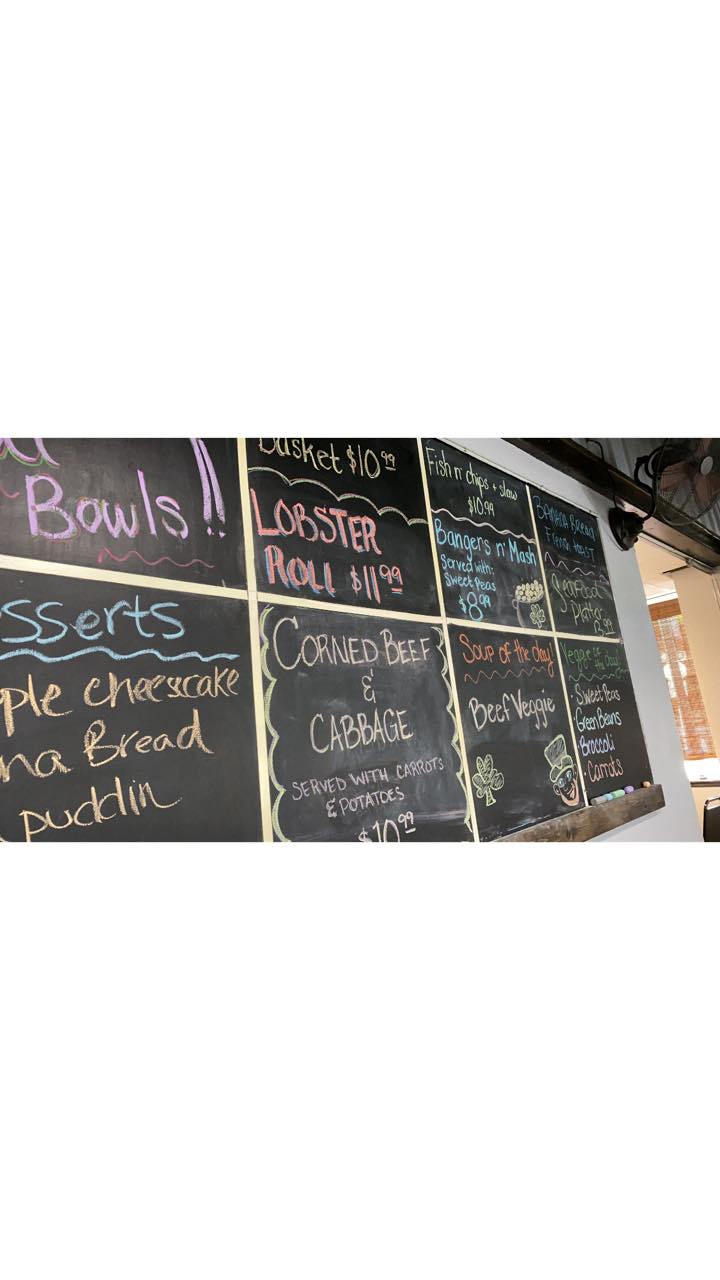 Bowls!!
sserts
ple cheesecake
na Bread
puddin
Basket $10.99
LOBSTER
ROLL $11.99
CORNED BEEF
&
CABBAGE
SERVED WITH CARROTS
& POTATOES
$10.99
Fish n' chips + slaw
$10.99
Bangers n' Mash
Served with:
Sweet Peas
$8.99
Soup of the day
Beef Veggie
BANANA BREAD
French toast
Seafood
Platter
Veggie of
the day
· Sweet Peas
· Green Beans
· Broccoli
· Carrots